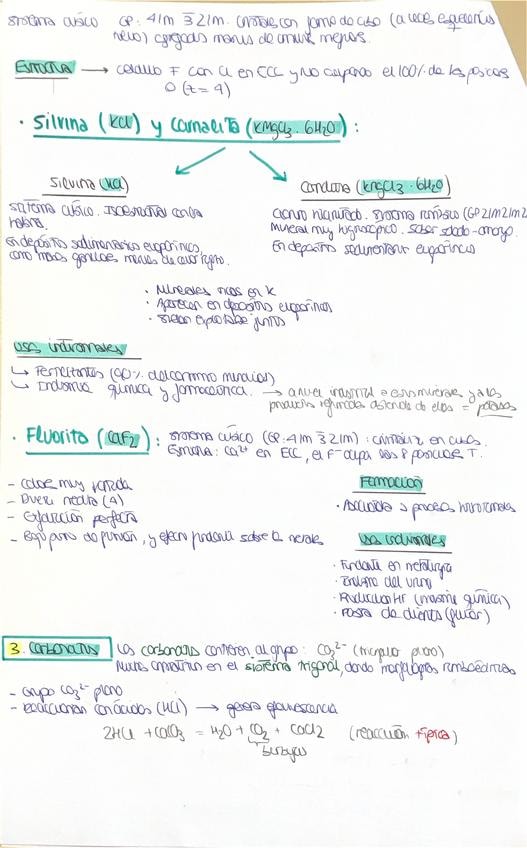 sistema cúbico GP: 4/m 3̅ 2/m. Cristales con forma de cubo (a veces esqueletos
hueco) agregados menos de común mejores.
Estructura → cúbico F con Cl en ECC y Na ocupando el 100% de las posiciones
O (z=4)
· Silvina (KCl) y Carnalita (KMgCl3·6H2O):
Silvina (KCl)
sistema cúbico. Isoestructural con la
halita.
En depósitos sedimentarios evaporíticos,
como masas granulares menos de color rojizo.
Carnalita (KMgCl3·6H2O)
Cloruro hidratado. Sistema rómbico (GP 2/m2/m2/m
Mineral muy higroscópico. Sabor salado-amargo.
En depósitos sedimentarios evaporíticos
· Minerales ricos en K
· Aparecen en depósitos evaporíticos
· Suelen explotarse juntos
Usos industriales
↳ Fertilizantes (90% del consumo mundial)
↳ Industria química y farmacéutica.
→ a nivel industrial a estos minerales y a los
productos refinados obtenidos de ellos = potasas
· Fluorita (CaF2): sistema cúbico (GP: 4/m 3̅ 2/m): cristaliza en cubos.
Estructura: Ca2+ en ECC, el F- ocupa las 8 posiciones T.
- Color muy variada
- Dureza media (4)
- Exfoliación perfecta
- Bajo punto de fusión, y efecto fundente sobre los metales
Formación
· Asociada a procesos hidrotermales
Usos industriales
· Fundente en metalurgia
· Industria del vidrio
· Producción HF (industria química)
· Pasta de dientes (flúor)
3. Carbonatos Los carbonatos contienen al grupo: CO3 2- (triangular plano)
Muchos cristalizan en el sistema trigonal, dando morfologías romboédricas
- Grupo CO3 2- plano
- Reaccionan con ácidos (HCl) → genera efervescencia
2HCl + CaCO3 = H2O + CO2 + CaCl2 (reacción típica)
burbujas